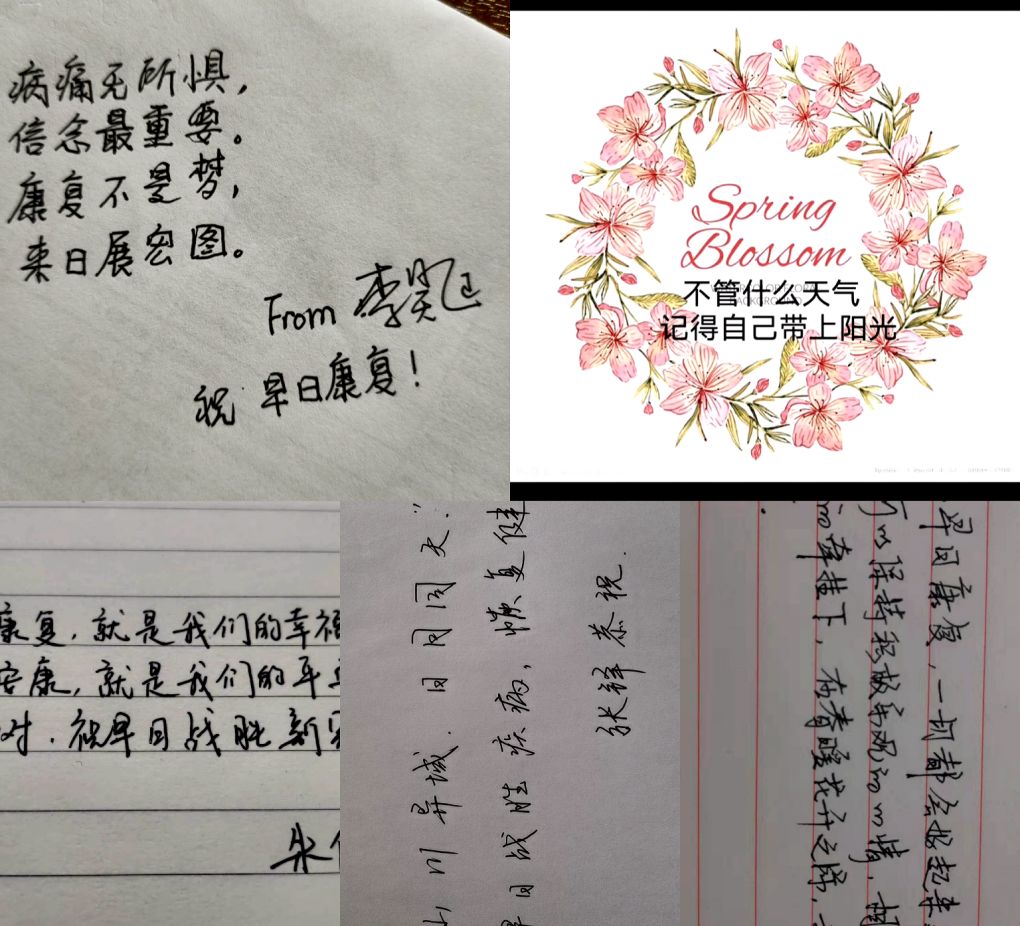 病痛无所惧，
信念最重要。
康复不是梦，
来日展宏图。
From 李昊
祝 早日康复！
Spring
Blossom
不管什么天气
记得自己带上阳光
康复，就是我们的幸福
安康，就是我们的平
对．祝早日战胜新
朱
山川异域．日月同天."
早日战胜疾病，恢复健
张祥恭祝．
早日康复，一切都会好起来
保持积极乐观的心情，
的牵挂下，在春暖花开之际，